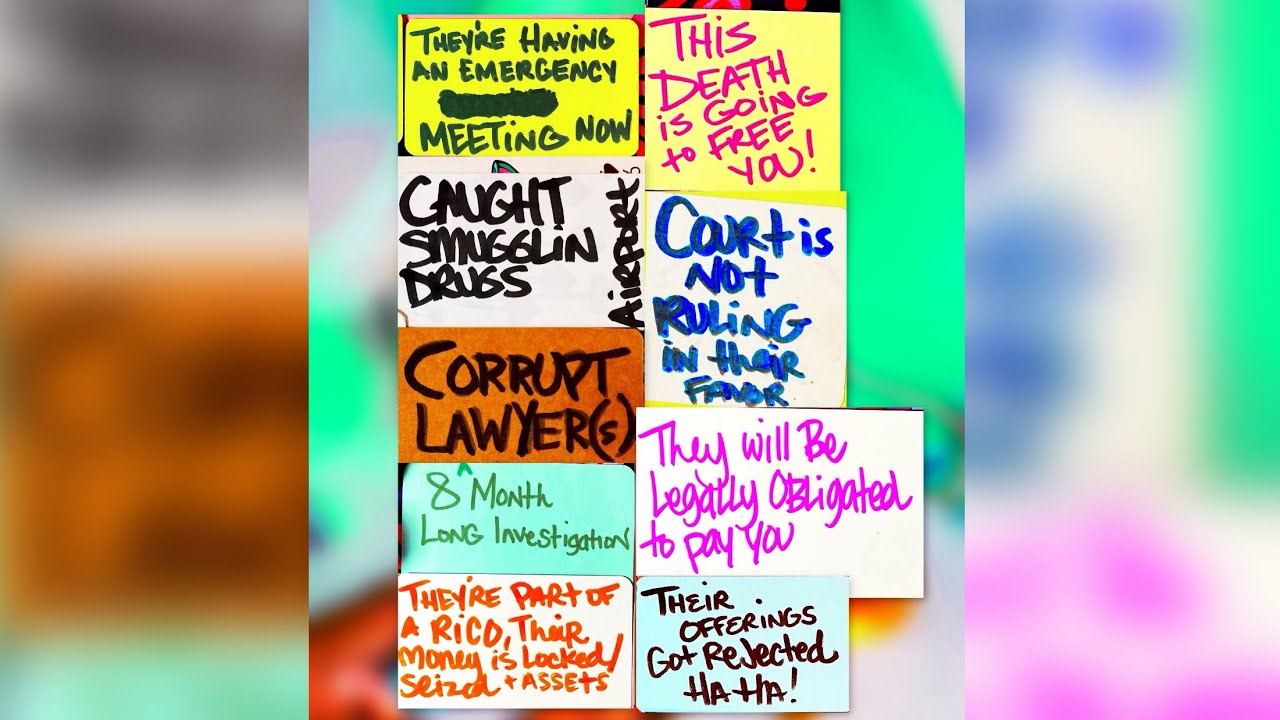 THEY'RE HAVING
AN EMERGENCY
MEETING NOW
CAUGHT
SMUGGLIN
DRUGS
AIRPORT
CORRUPT
LAWYER(s)
8 ^ Month
LONG Investigation
THEY'RE PART OF
A RICO, Their
Money is Locked/
Seized + ASSETS
THIS
DEATH
is GOING
to FREE
YOU!
COURT is
NOT
RULING
IN their
FAVOR
They will Be
Legally OBligated
to pay you
THEIR
OFFERINGS
Got Rejected
HA HA!